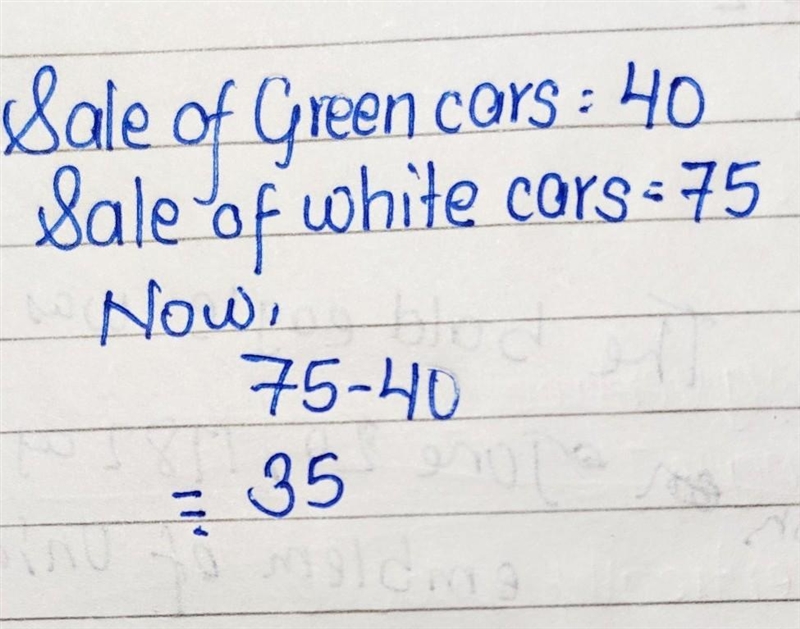 Sale of Green cars = 40
Sale of white cars = 75
Now,
75-40
= 35